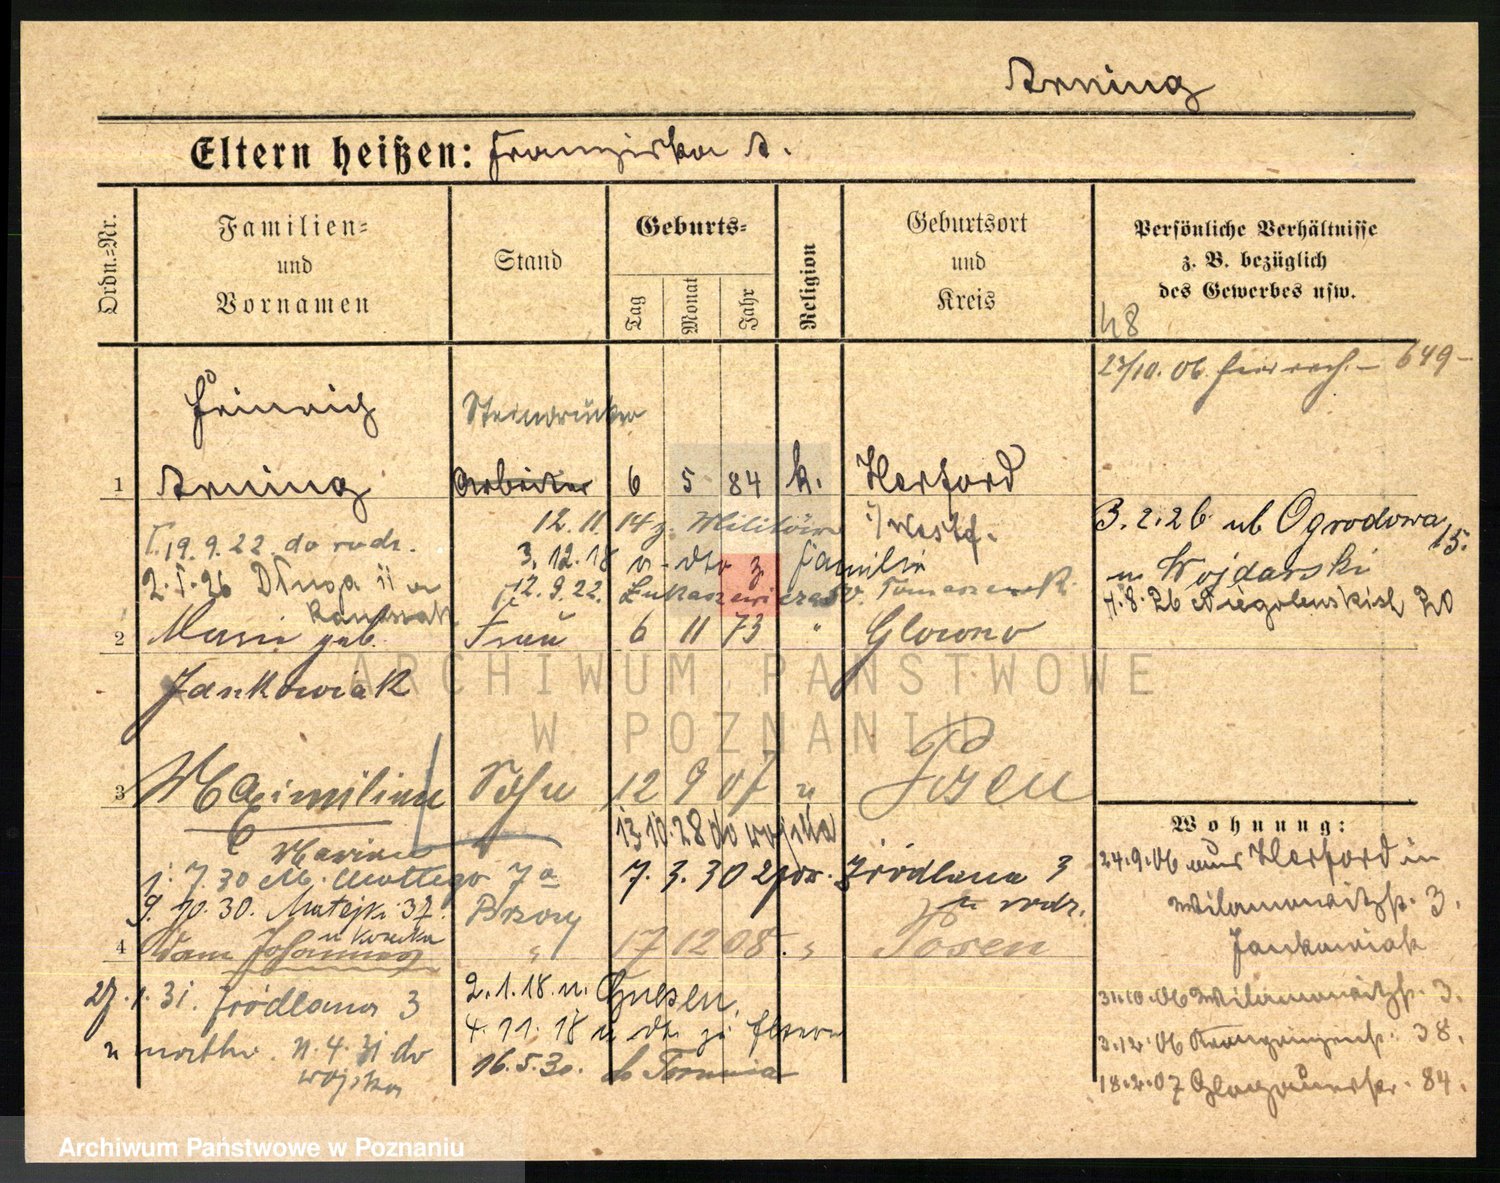 Arning
Eltern heißen: Franziska A.
Ordn.-Nr.
Familien-
und
Vornamen
Stand
Geburts-
Tag
Monat
Jahr
Religion
Geburtsort
und
Kreis
Persönliche Verhältnisse
z. B. bezüglich
des Gewerbes usw.
48
27/10. 06. 649-
Heinrich
Steindrucker
1 Arning Arbeiter 6 5 84 k. Herford
i/Westf.
12. 11. 14 z. Militär
19. 9. 22 do rodz.
3. 12. 18 v. dto z. Familie
2. I. 26 Długa 11
12. 9. 22. Łukaszewicza
2 Marie geb. Frau 6 11 73 " Glowno
Jankowiak
3. 2. 26 ub Ogrodowa 15.
u Wojdarski
4. 8. 26 Niegolewskich 20
3 Maximilian Sohn 12 9 07 " Posen
13. 10. 28 do wojska
Marian
1. 7. 30 M. Mottego 7a
7. 3. 30 Źródlana 3
u rodz.
9. 10. 30. Matejki 37.
4 Johannes " 17 12 08. " Posen
27. 1. 31. Źródlana 3
u matki. 11. 4. 31 do
wojska
2. 1. 18 n. Gnesen.
4. 11. 18 v. dt. zu Eltern
16. 5. 30. do Torunia
Wohnung:
24. 9. 06 aus Herford in
Wilamowitzstr. 3.
Jankowiak
31. 10. 06 Wilamowitzstr. 3.
3. 12. 06 Kronprinzenstr. 38.
18. 2. 07 Glogauerstr. 84.
ARCHIWUM PAŃSTWOWE
W POZNANIU
Archiwum Państwowe w Poznaniu